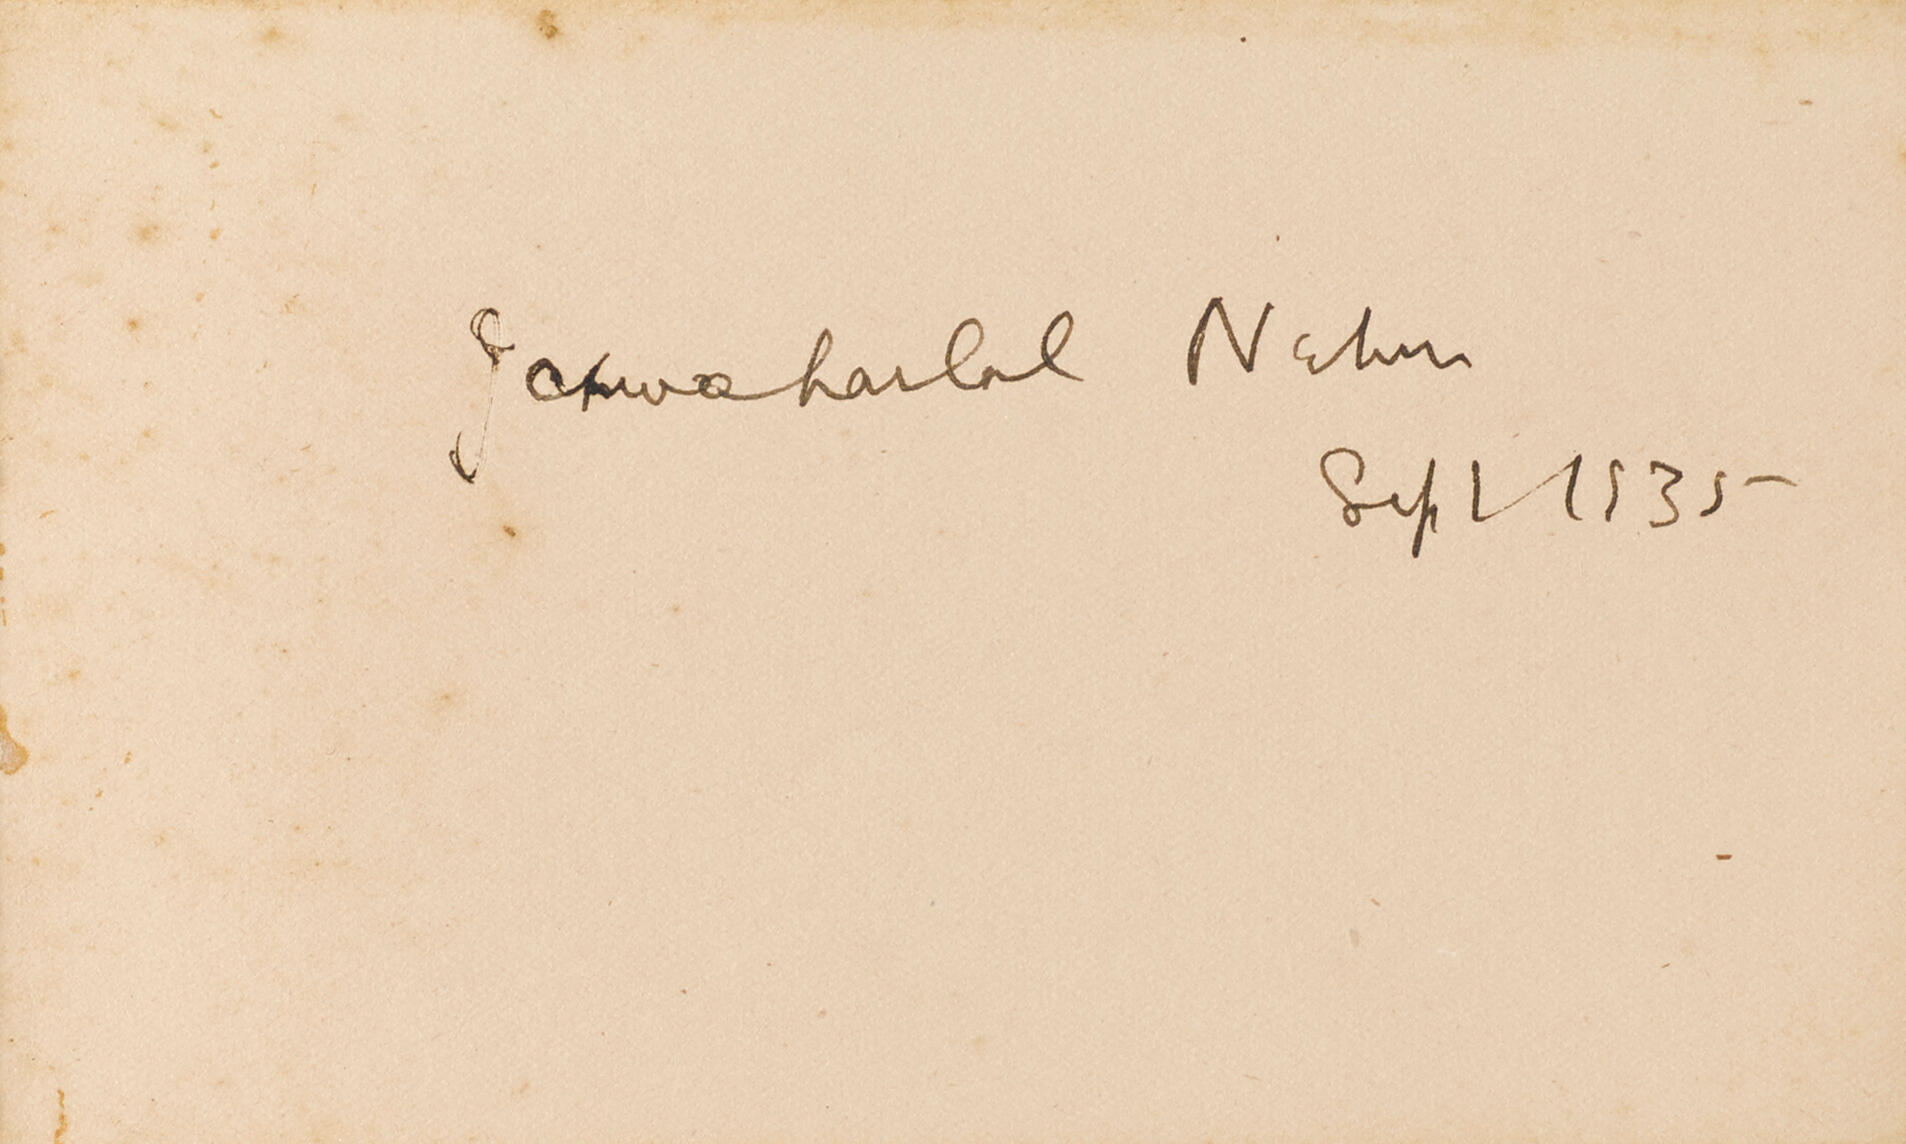 Jawaharlal Nehru
Sept 1935